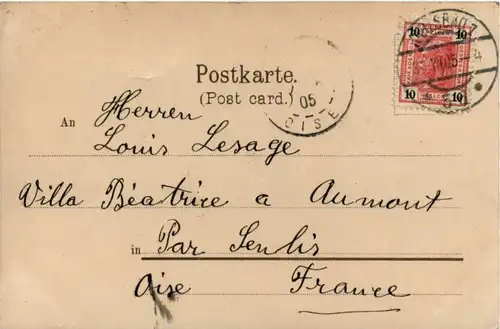 10 10
10 10
Postkarte.
(Post card.)
05
OISE
An Herren
Louis Lesage
Villa Béatrice a Aumont
in Par Senlis
Oise France